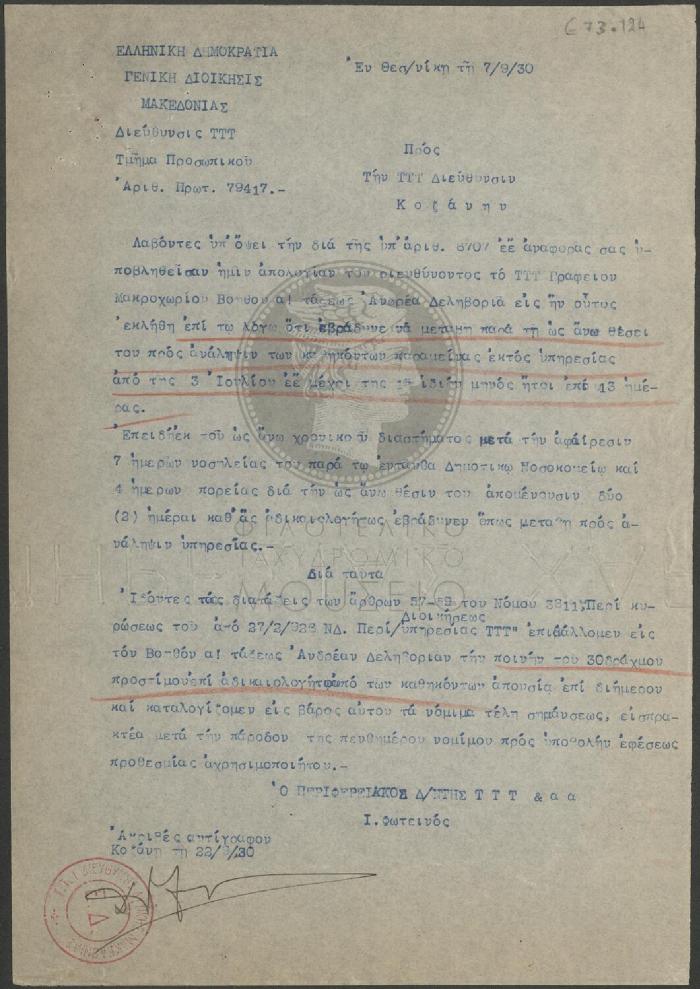 C 73.124
ΕΛΛΗΝΙΚΗ ΔΗΜΟΚΡΑΤΙΑ
ΓΕΝΙΚΗ ΔΙΟΙΚΗΣΙΣ
ΜΑΚΕΔΟΝΙΑΣ
Διεύθυνσις ΤΤΤ
Τμῆμα Προσωπικοῦ
Ἀριθ. Πρωτ. 79417.-
Ἐν Θεσ/νίκῃ τῇ 7/9/30
Πρός
Τήν ΤΤΤ Διεύθυνσιν
Κοζάνην
Λαβόντες ὑπ'ὄψει τήν διά τῆς ὑπ'ἀριθ. 6707 ἐἔ ἀναφορᾶς σας ὑ-
ποβληθεῖσαν ἡμῖν ἀπολογίαν τοῦ διευθύνοντος τό ΤΤΤ Γραφεῖον
Μακροχωρίου Βοηθοῦ α! τάξεως Ἀνδρέα Δεληβοριᾶ εἰς ἥν οὗτος
ἐκλήθη ἐπί τῷ λόγῳ ὅτι ἐβράδυνε νά μεταβῇ παρά τῇ ὡς ἄνω θέσει
του πρός ἀνάληψιν των καθηκόντων παραμείνας ἐκτός ὑπηρεσίας
ἀπό της 3 Ἰουλίου ἐἔ μέχρι της 15 ἰδίου μηνός ἤτοι ἐπί 13 ἡμέ-
ρας.
Ἐπειδή ἐκ τοῦ ὡς ἄνω χρονικοῦ διαστήματος μετά τήν ἀφαίρεσιν
7 ἡμερῶν νοσηλείας του παρά τῷ ἐνταῦθα Δημοτικῷ Νοσοκομείῳ καί
4 ἡμερῶν πορείας διά τήν ὡς ἄνω θέσιν του ἀπομένουσιν δύο
(2) ἡμέραι καθ'ἅς ἀδικαιολογήτως ἐβράδυνεν ὅπως μεταβῇ πρός ἀ-
νάληψιν ὑπηρεσίας.-
Διά ταῦτα
Ἰδόντες τάς διατάξεις των ἄρθρων 57-59 του Νόμου 3811,Περί κυ-
ρώσεως τοῦ ἀπό 27/2/926 ΝΔ. Περί Διοικήσεως ὑπηρεσίας ΤΤΤ" ἐπιβάλλομεν εἰς
τόν Βοηθόν α! τάξεως Ἀνδρέαν Δεληβοριᾶν τήν ποινήν τοῦ 30δράχμου
προστίμου ἐπί ἀδικαιολογήτῳ ἀπό των καθηκόντων ἀπουσίᾳ ἐπί διήμερον
καί καταλογίζομεν εἰς βάρος αὐτοῦ τά νόμιμα τέλη σημάνσεως, εἰσπρα-
κτέα μετά τήν πάροδον της πενθημέρου νομίμου πρός ὑποβολήν ἐφέσεως
προθεσμίας ἀχρησιμοποιήτου.-
Ὁ ΠΕΡΙΦΕΡΕΙΑΚΟΣ Δ/ΝΤΗΣ Τ Τ Τ & α α
Ι. Φωτεινός
Ἀκριβές ἀντίγραφον
Κοζάνη τῇ 22/9/30
ΦΙΛΟΤΕΛΙΚΟ
ΤΑΧΥΔΡΟΜΙΚΟ
ΜΟΥΣΕΙΟ